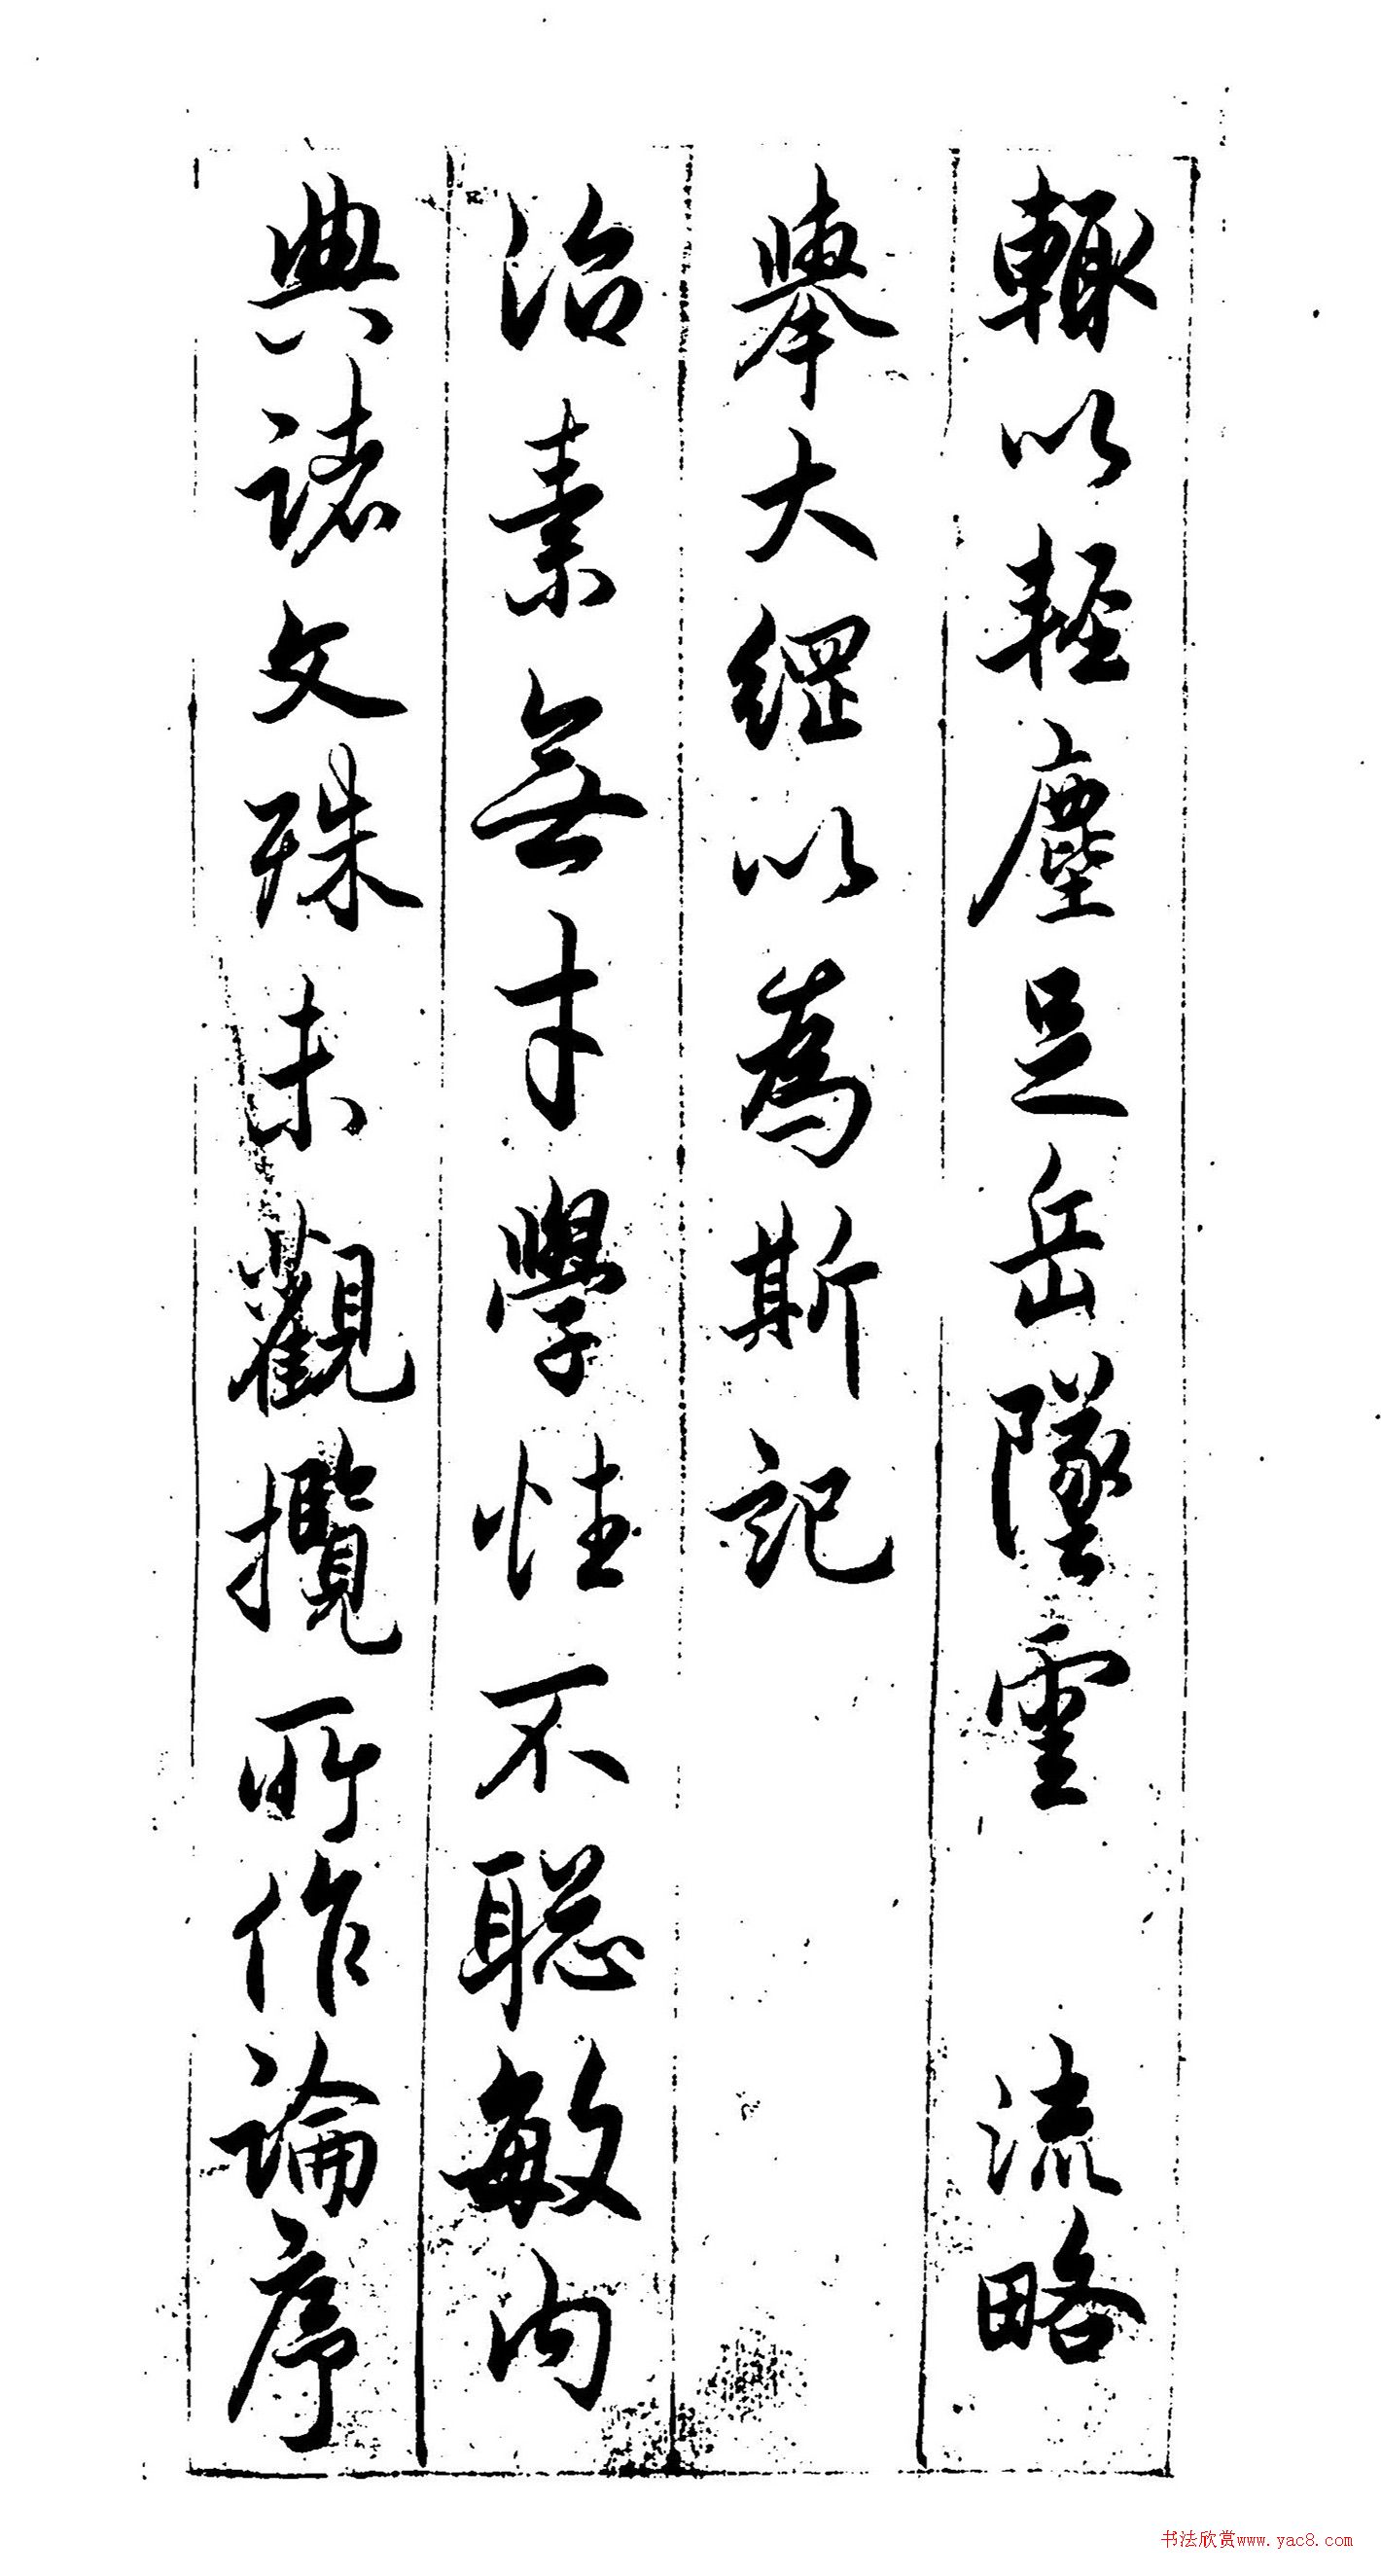 輙以輕塵足岳墜露 流略
舉大綱以為斯記
治素無才學性不聰敏内
典諸文殊未觀攬所作論序
书法欣赏www.yac8.com